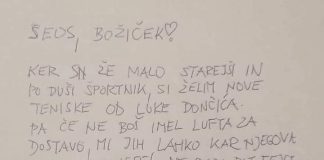 ŠEUS, BOŽIČEK!
KER SN ŽE MALO STAREJŠI IN
PO DUŠI ŠPORTNIK, SI ŽELIM NOVE
TENISKE OD LUKE DONČIĆA.
PA ČE NE BOŠ IMEL LUFTA ZA
DOSTAVO, MI JIH LAHKO KAR NJEGOVA